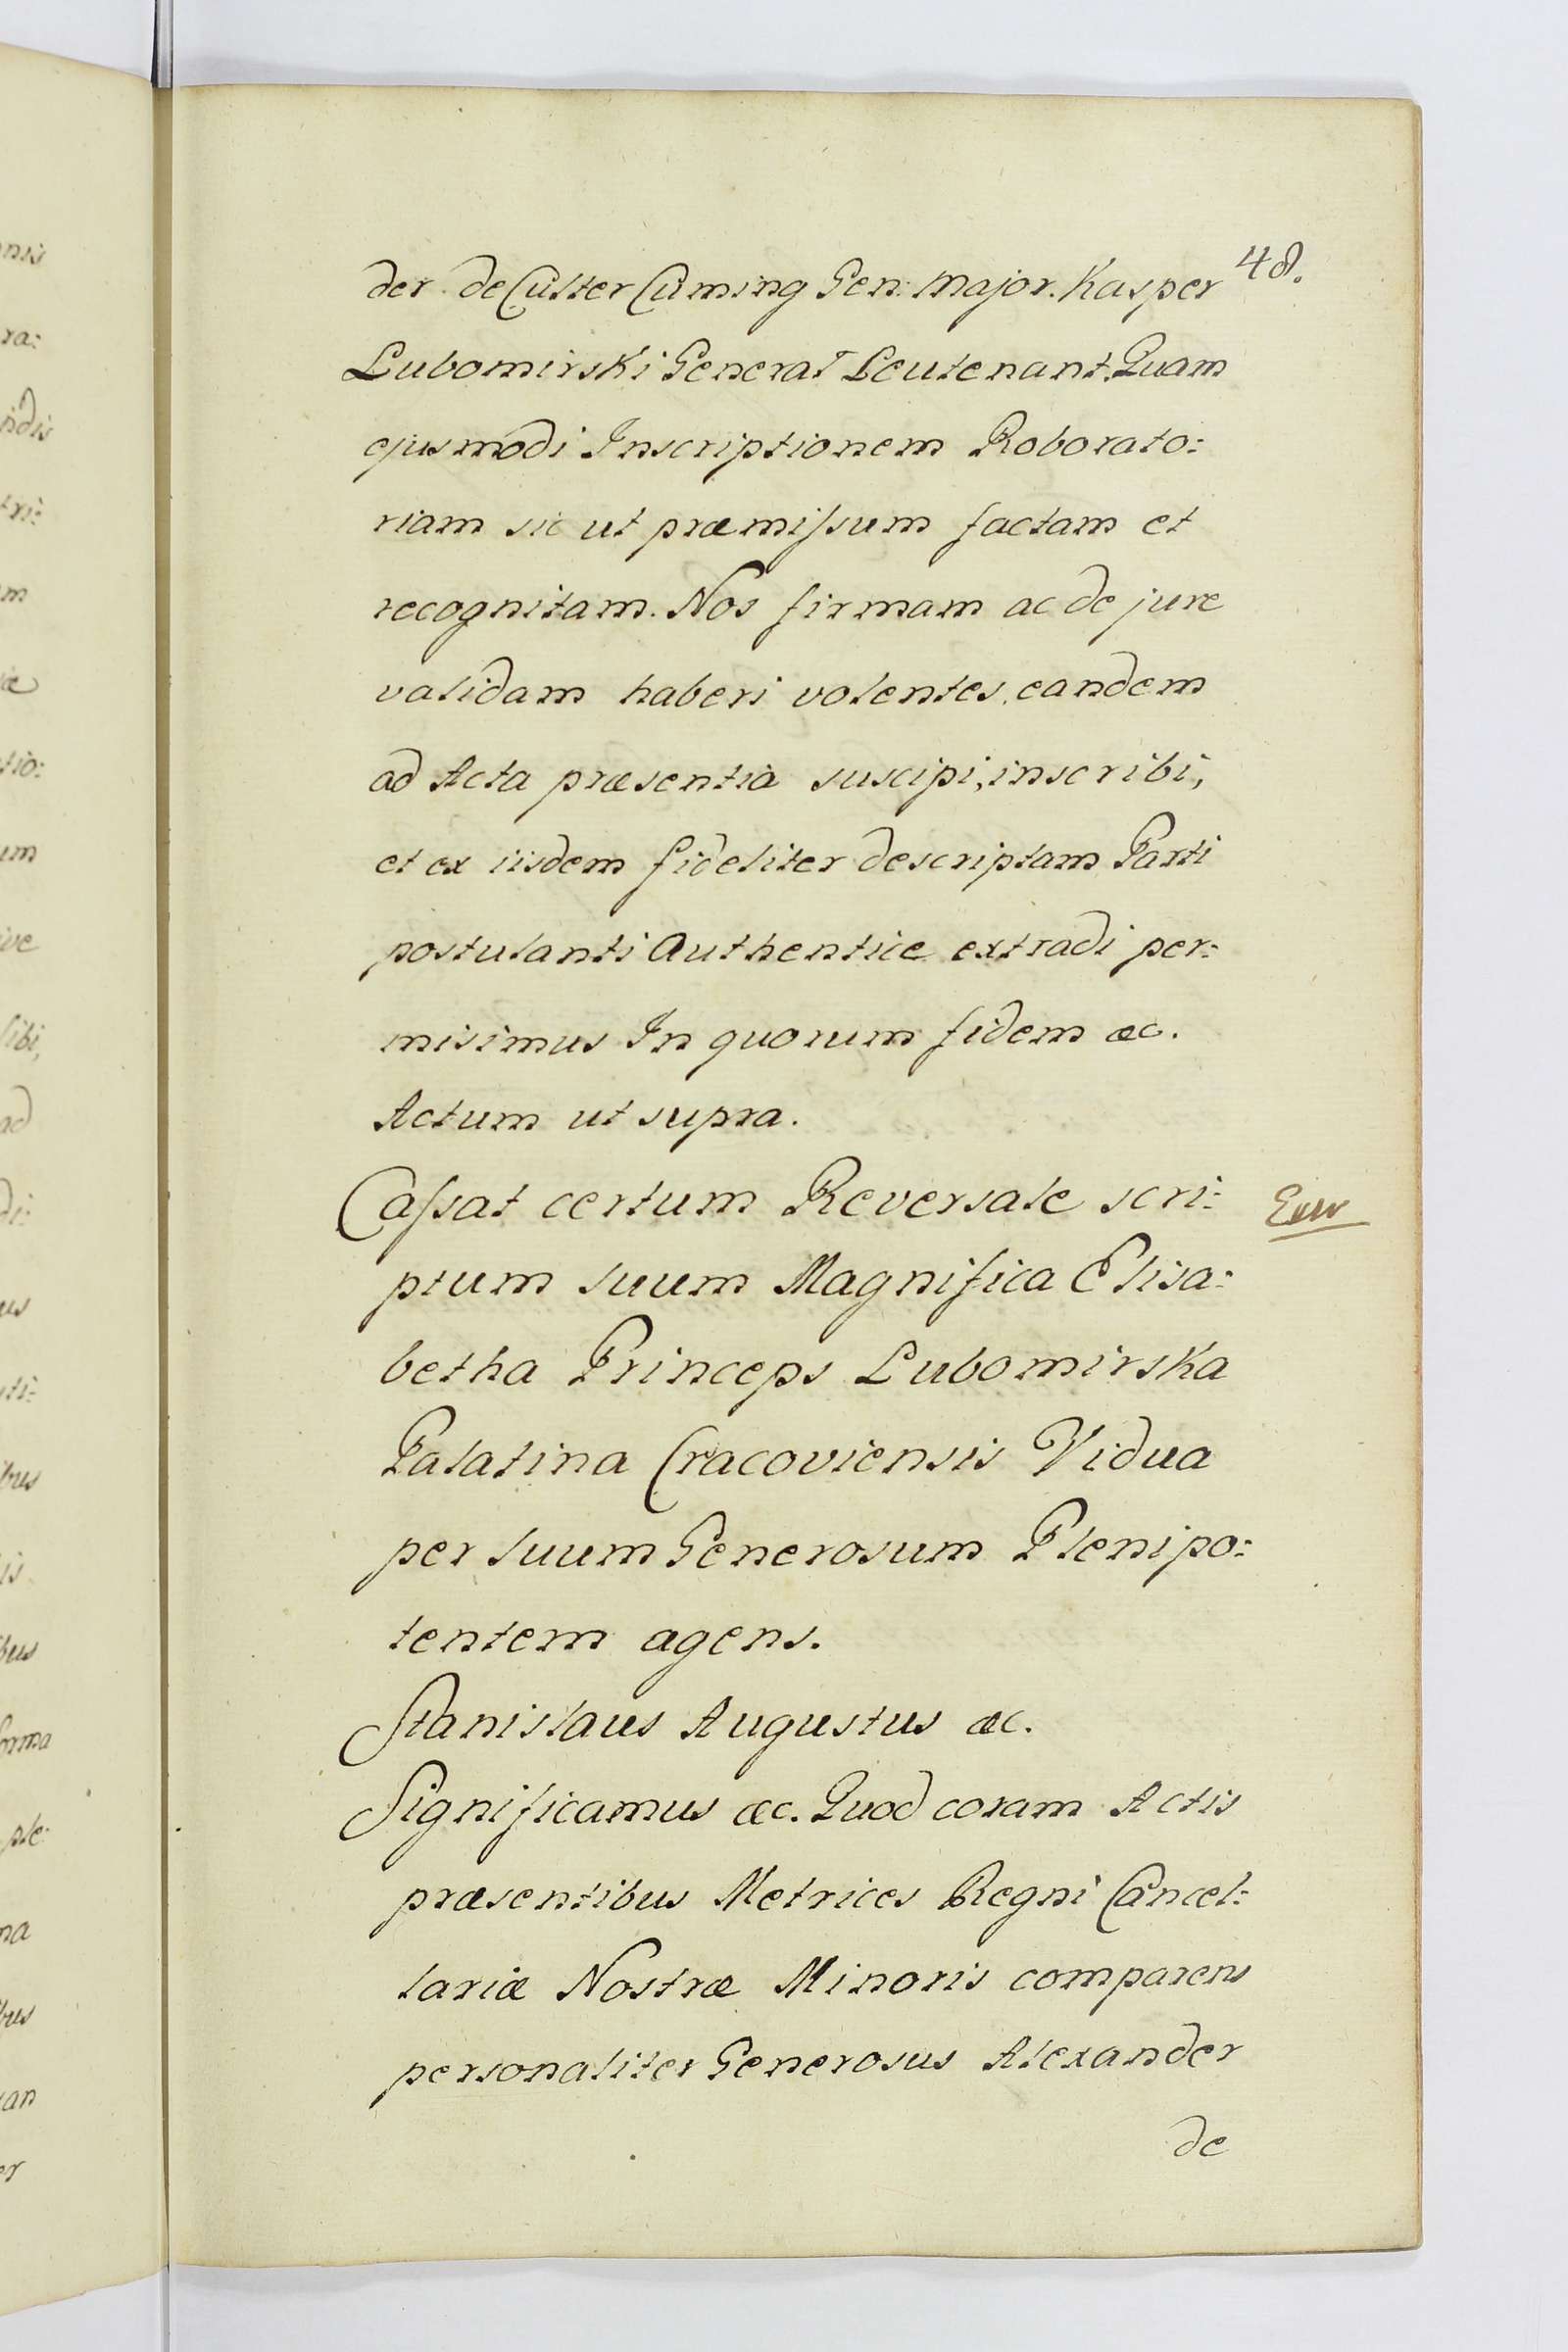 48.
der de Culter Cuming Gen: Major. Kasper
Lubomirski General Leutenant. Quam
ejusmodi Inscriptionem Roborato:
riam sic ut præmissum factam et
recognitam. Nos firmam ac de jure
validam haberi volentes, eandem
ad Acta præsentia suscipi, inscribi,
et ex iisdem fideliter descriptam Parti
postulanti Authentice extradi per:
misimus In quorum fidem &c.
Actum ut supra.
Cassat certum Reversale scri:
ptum suum Magnifica Elisa:
betha Princeps Lubomirska
Palatina Cracoviensis Vidua
per suum Generosum Plenipo:
tentem agens.
Stanislaus Augustus &c.
Significamus &c. Quod coram Actis
præsentibus Metrices Regni Cancel:
lariæ Nostræ Minoris comparens
personaliter Generosus Alexander
de